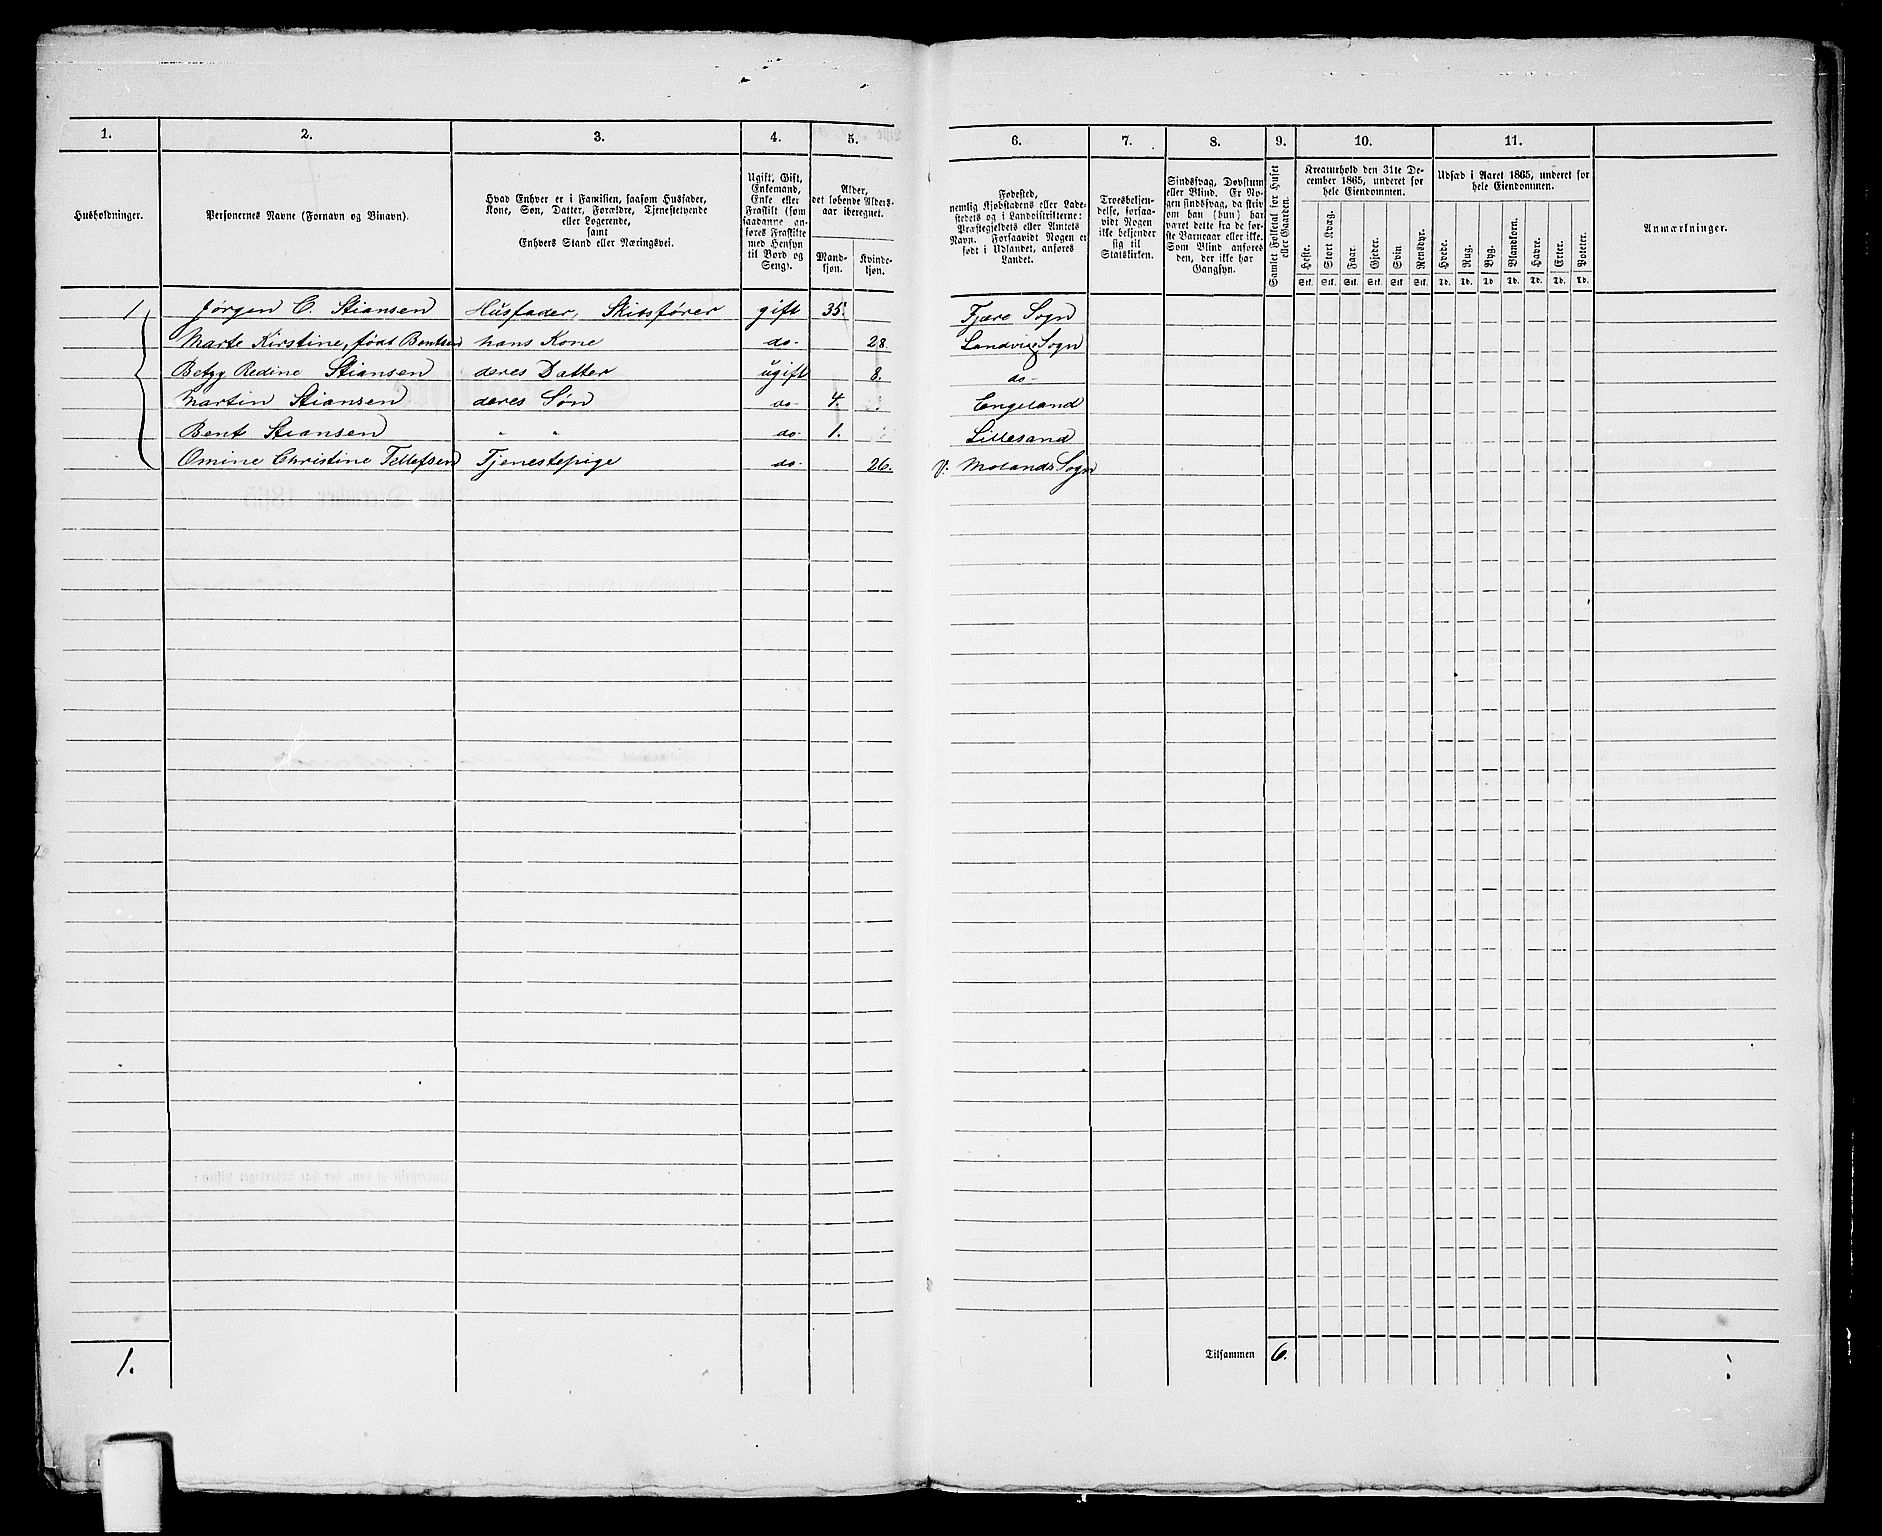 1. 2. 3. 4. 5. 6. 7. 8. 9. 10. 11.
Husholdninger.
Personernes Navne (Fornavn og Binavn).
Hvad Enhver er i Familien, saasom Husfader,
Kone, Søn, Datter, Forældre, Tjenestetyende
eller Logerende,
samt
Enhvers Stand eller Næringsvei.
Ugift, Gift,
Enkemand,
Enke eller
Fraskilt (som
saadanne an-
føres Fraskilte
med Hensyn
til Bord og
Seng).
Alder,
det løbende Alders-
aar iberegnet.
Mand-
kjøn.
Kvinde-
kjøn.
Fødested,
nemlig Kjøbstadens eller Lade-
stedets og i Landdistrikterne:
Præstegjeldets eller Amtets
Navn. Forsaavidt Nogen er
født i Udlandet, anføres
Landet.
Troesbekjen-
delse, forsaa-
vidt Nogen
ikke bekjender
sig til
Statskirken.
Sindssvag, Døvstum
eller Blind. Er No-
gen sindssvag, da skriv
om han (hun) har
været dette fra de før-
ste Barneaar eller ikke.
Som Blind anføres
den, der ikke har
Gangsyn.
Samlet Folketal for Huset
eller Gaarden.
Kreaturhold den 31te De-
cember 1865, underet for
hele Eiendommen.
Heste. Stort Kvæg. Faar. Gjeder. Svin Rensdyr.
Stk. Stk. Stk. Stk. Stk Stk.
Udsæd i Aaret 1865, underet for
hele Eiendommen.
Hvede. Rug. Byg. Blandkorn. Havre. Erter. Poteter.
Td. Td. Td Td. Td. Td. Td.
Anmærkninger.
1 Jørgen C. Stiansen Husfader, Skibsfører gift 35. Fjære Sogn
Marte Kirstine, født Bentsen hans Kone do- 28. Landvig Sogn
Betzy Redine Stiansen deres Datter ugift 8. do-
Martin Stiansen deres Søn do- 4. Engeland
Bent Stiansen " " do- 1. Lillesand
Omine Christine Tellefsen Tjenestepige do- 26. V. Molands Sogn
1. Tilsammen 6.